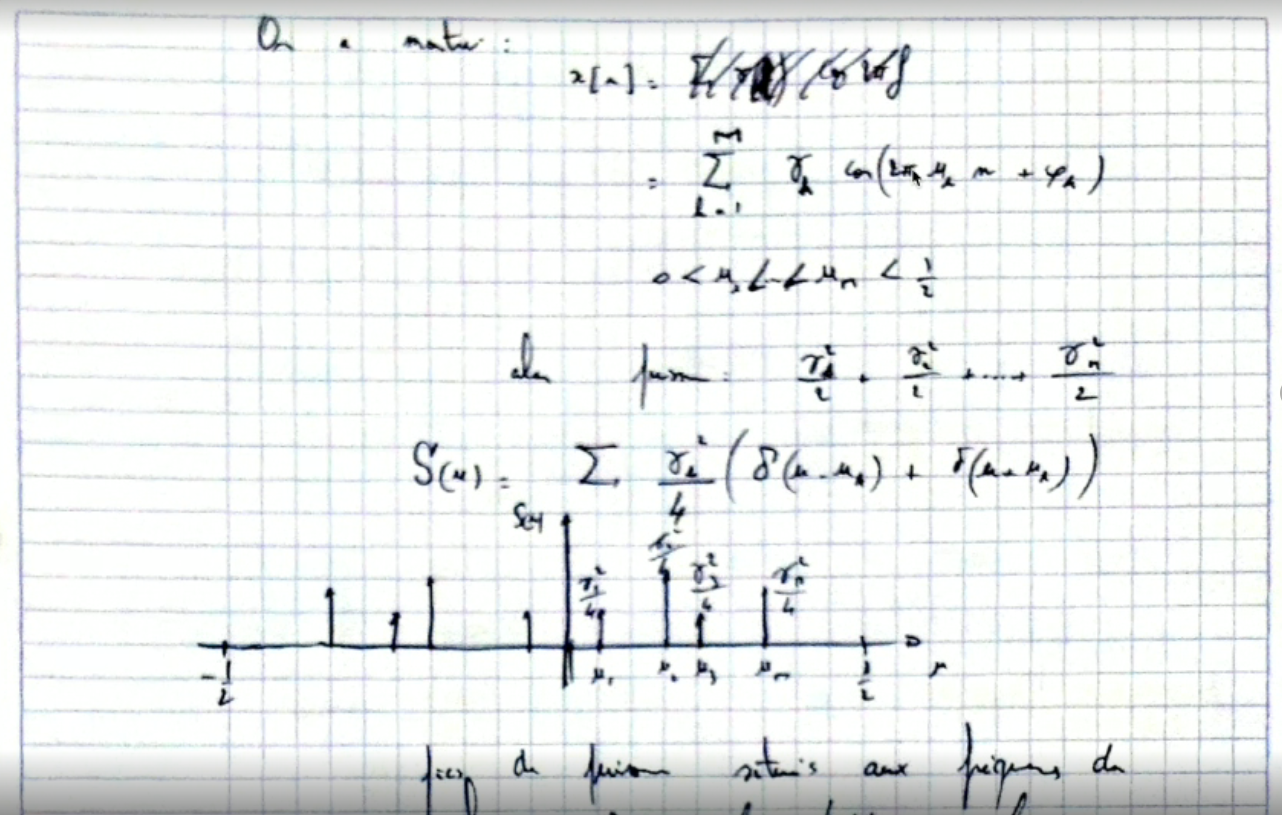 On a montré :
x[n] =
= ∑_{k=1}^{M} γ_k cos(2π μ_k n + φ_k)
0 < μ_1 < ... < μ_M < 1/2
alors puissance : γ_1²/2 + γ_2²/2 + .... + γ_M²/2
S(μ) = ∑ γ_k²/4 ( δ(μ - μ_k) + δ(μ + μ_k) )
S(μ)
γ_1²/4 γ_2²/4 γ_3²/4 γ_M²/4
-1/2 μ_1 μ_2 μ_3 μ_M 1/2 μ
pics de puissance situés aux fréquences du